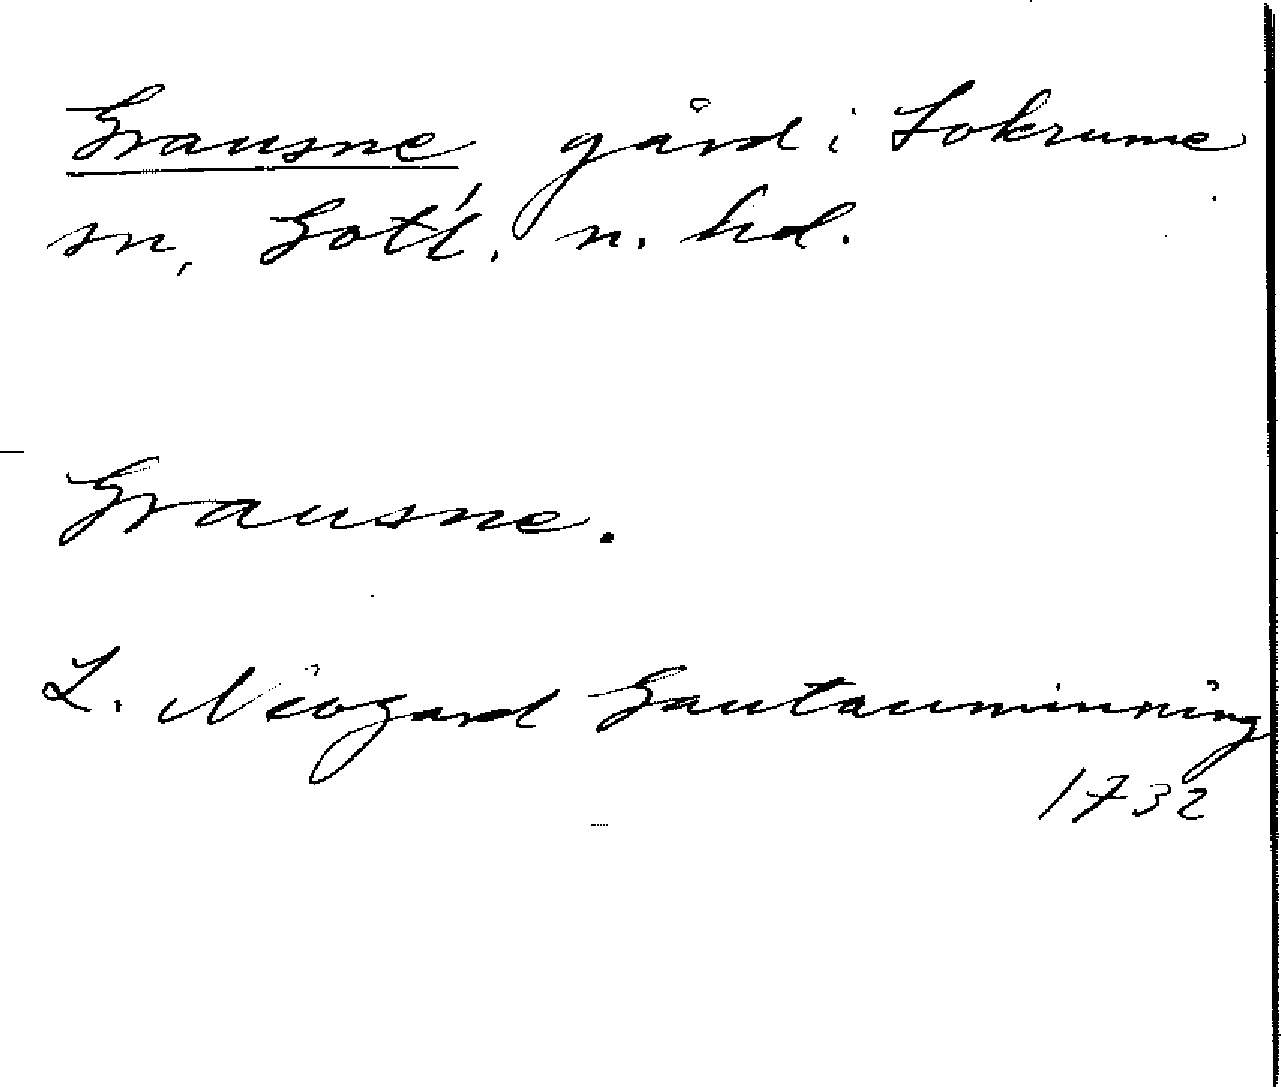 Grausne gård i Lokrume
sn, Gotl. n. hd.
Grausne.
L. Neogard Gautauminning
1732